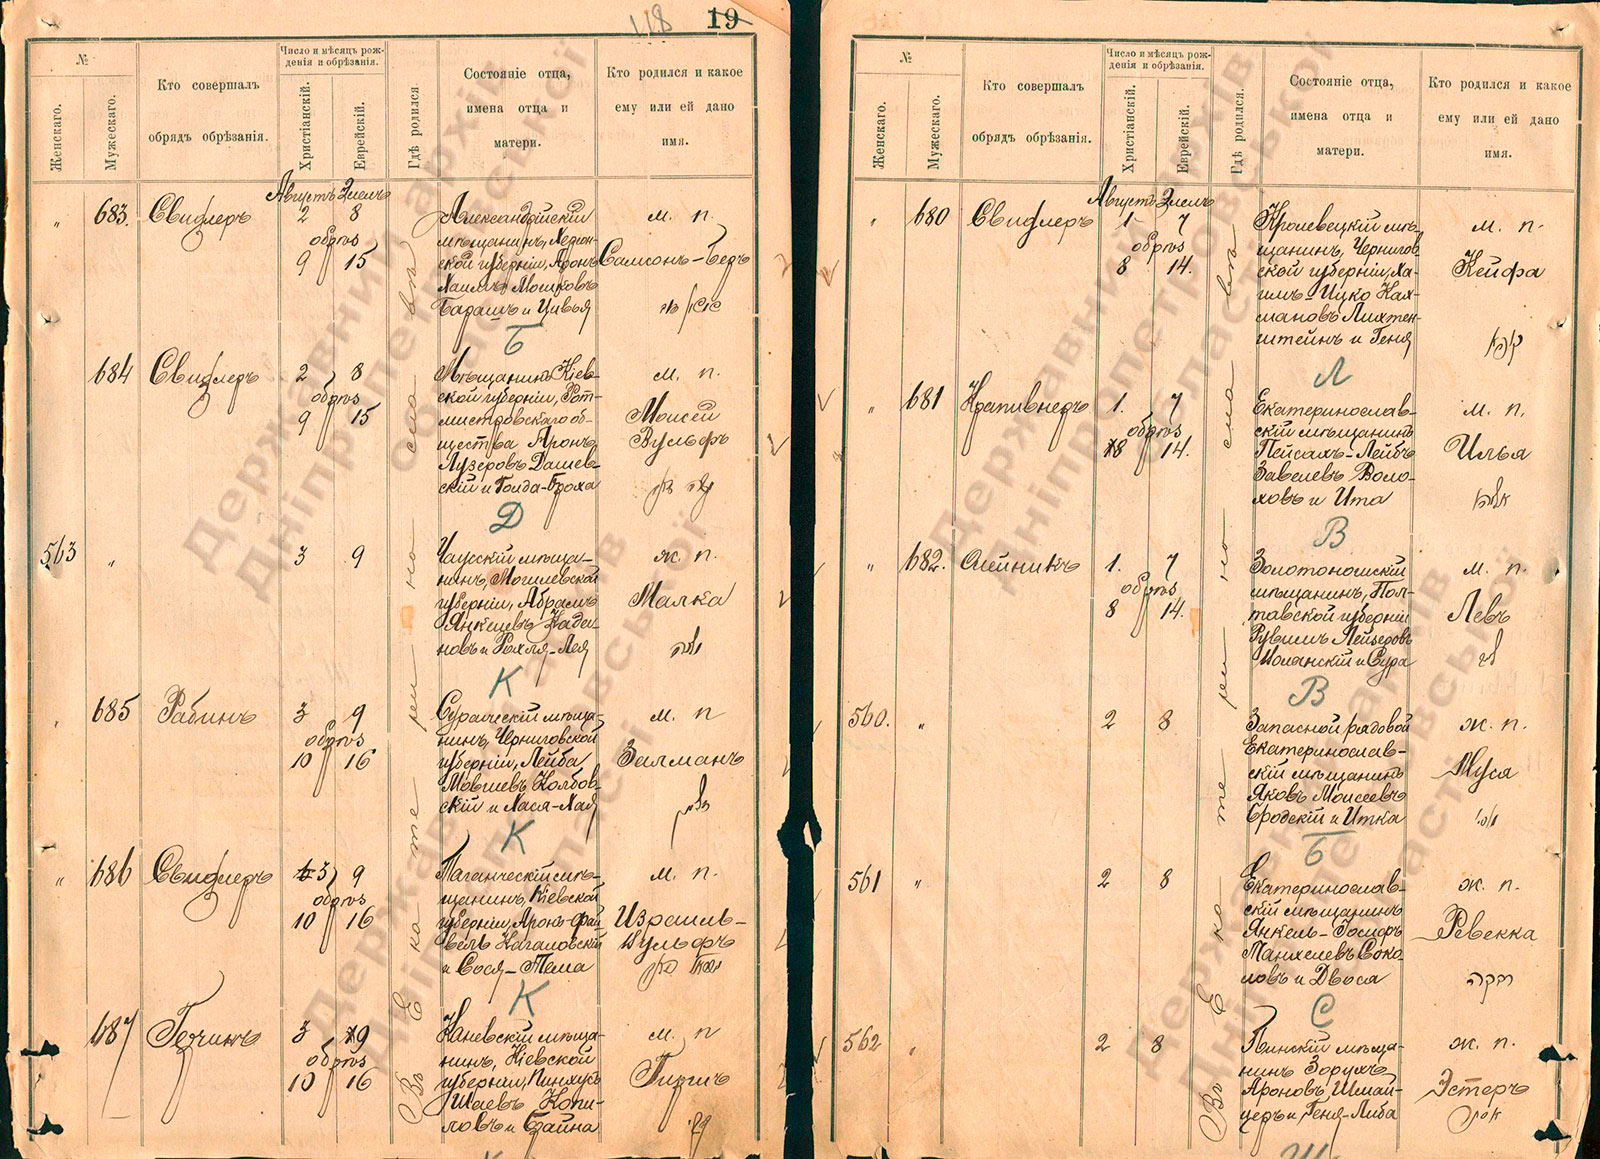 118 19
№
Женскаго.
Мужескаго.
Кто совершалъ
обрядъ обрѣзанія.
Число и мѣсяцъ рож-
денія и обрѣзанія.
Христіанскій.
Еврейскій.
Гдѣ родился
Состояніе отца,
имена отца и
матери.
Кто родился и какое
ему или ей дано
имя.
Августъ Элелъ
Въ Екатеринославѣ
" 683. Свидлеръ 2 8
обрѣз
9 15
мѣщанинъ, Херсон-
ской губерніи, Аронъ
Хаимъ Мошковъ
Барашъ и Цивья
м. п.
Самсонъ-Беръ
Б
684 Свидлеръ 2 8
обрѣз
9 15
Мѣщанинъ Кіев-
ской губерніи, Рот-
мистровскаго об-
щества Аронъ
Лузеровъ Дашев-
скій и Голда-Броха
м. п.
Моисей
Вульфъ
Д
563 " 3 9
Чаусскій мѣща-
нинъ, Могилевской
губерніи, Абрамъ
Янкелевъ
новъ и Рохля-Лея
ж. п.
Малка
К
685 Рабинъ 3 9
обрѣз
10 16
Суражскій мѣща-
нинъ, Черниговской
губерніи, Лейба
Мовшевъ Колбов-
скій и Хася-Хая
м. п
Залманъ
К
" 686 Свидлеръ 3 9
обрѣз
10 16
Таганческій мѣ-
щанинъ, Кіевской
губерніи, Аронъ-Фай-
вель Кагановскій
и Сося-Тема
м. п.
Израиль-
Вульфъ
К
687 3 9
обрѣз
10 16
Каневскій мѣща-
нинъ, Кіевской
губерніи, Пинхусъ
Шаевъ Копи-
ловъ и
м. п
Гиршъ
№
Женскаго.
Мужескаго.
Кто совершалъ
обрядъ обрѣзанія.
Число и мѣсяцъ рож-
денія и обрѣзанія.
Христіанскій.
Еврейскій.
Гдѣ родился.
Состояніе отца,
имена отца и
матери.
Кто родился и какое
ему или ей дано
имя.
Августъ Элелъ
Въ Екатеринославѣ
" 680 Свидлеръ 1. 7
обрѣз
8 14.
Кролевецкій мѣ-
щанинъ, Чернигов-
ской губерніи, Ха-
имъ-Ицко Нах-
мановъ Лихтен-
штейнъ и Геня
м. п.
Кейфа
Л
" 681 Крапивнеръ 1. 7
обрѣз
8 14.
Екатеринослав-
скій мѣщанинъ
Пейсахъ-Лейбъ
Завелевъ Воло-
ховъ и Ита
м. п.
Илья
В
" 682. Олейникъ 1. 7
обрѣз
8 14.
Золотоношскій
мѣщанинъ, Пол-
тавской губерніи
Рувимъ Лейзеровъ
и Сура
м. п.
Левъ
В
560. " 2 8
Запасной рядовой
Екатеринослав-
скій мѣщанинъ
Яковъ Моисеевъ
Бродскій и Итка
ж. п.
Муся
Б
561 " 2 8
Екатеринослав-
скій мѣщанинъ
Янкель-Іосифъ
Манхелевъ Соко-
ловъ и Двоса
ж. п.
Ревекка
רבקה
С
562 " 2 8
Пинскій мѣща-
нинъ Зорухъ
Ароновъ, Шмай-
церъ и Геня-Либа
ж. п.
Эстеръ
Ш
Державний архів
Дніпропетровської
області